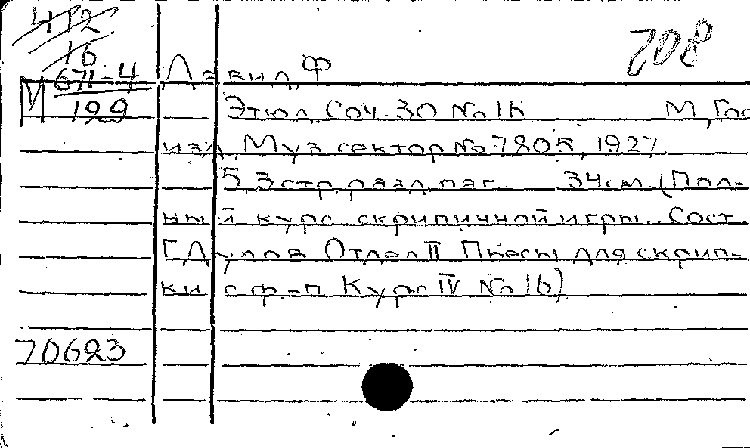 412
16
708
М 671-4
199
Давид, Ф
Этюд, Соч. 30 No 1К М, Гос
изд, Муз. сектор No 7805, 1927
5, 3 стр. разд. паг. 34 см. (Пол-
ный курс скрипичной игры. Сост.
Г. Дулов Отдел II Пьесы для скрип-
ки с ф-п Курс IV No 16)
70623